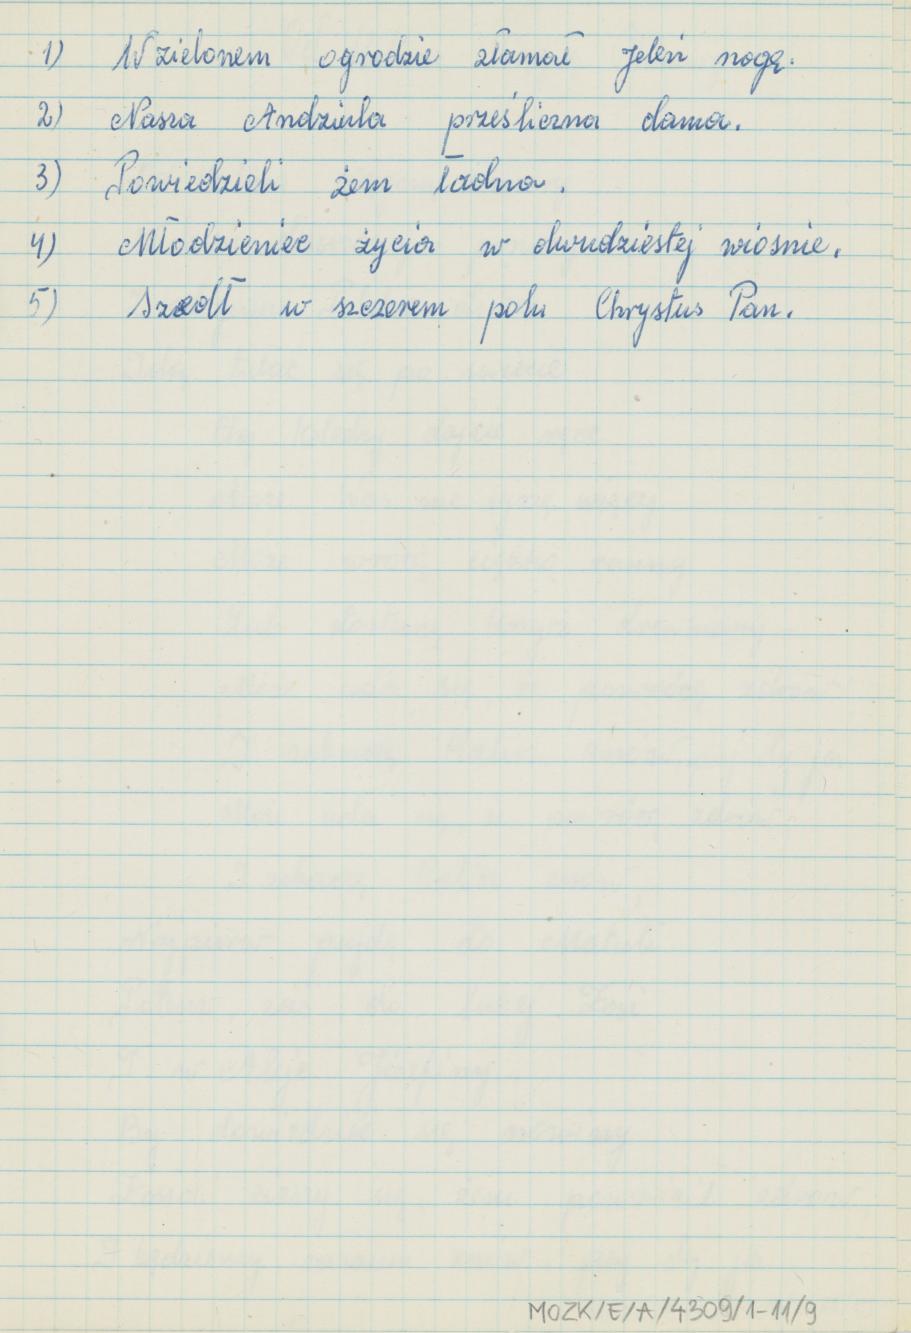 1) W zielonem ogrodzie złamał jeleń nogę.
2) Nasza Andziula prześliczna dama.
3) Powiedzieli żem ładna.
4) Młodzieniec życia w dwudziestej wiośnie.
5) Szedł w szczerem polu Chrystus Pan.
MOZK/E/A/4309/1-11/9